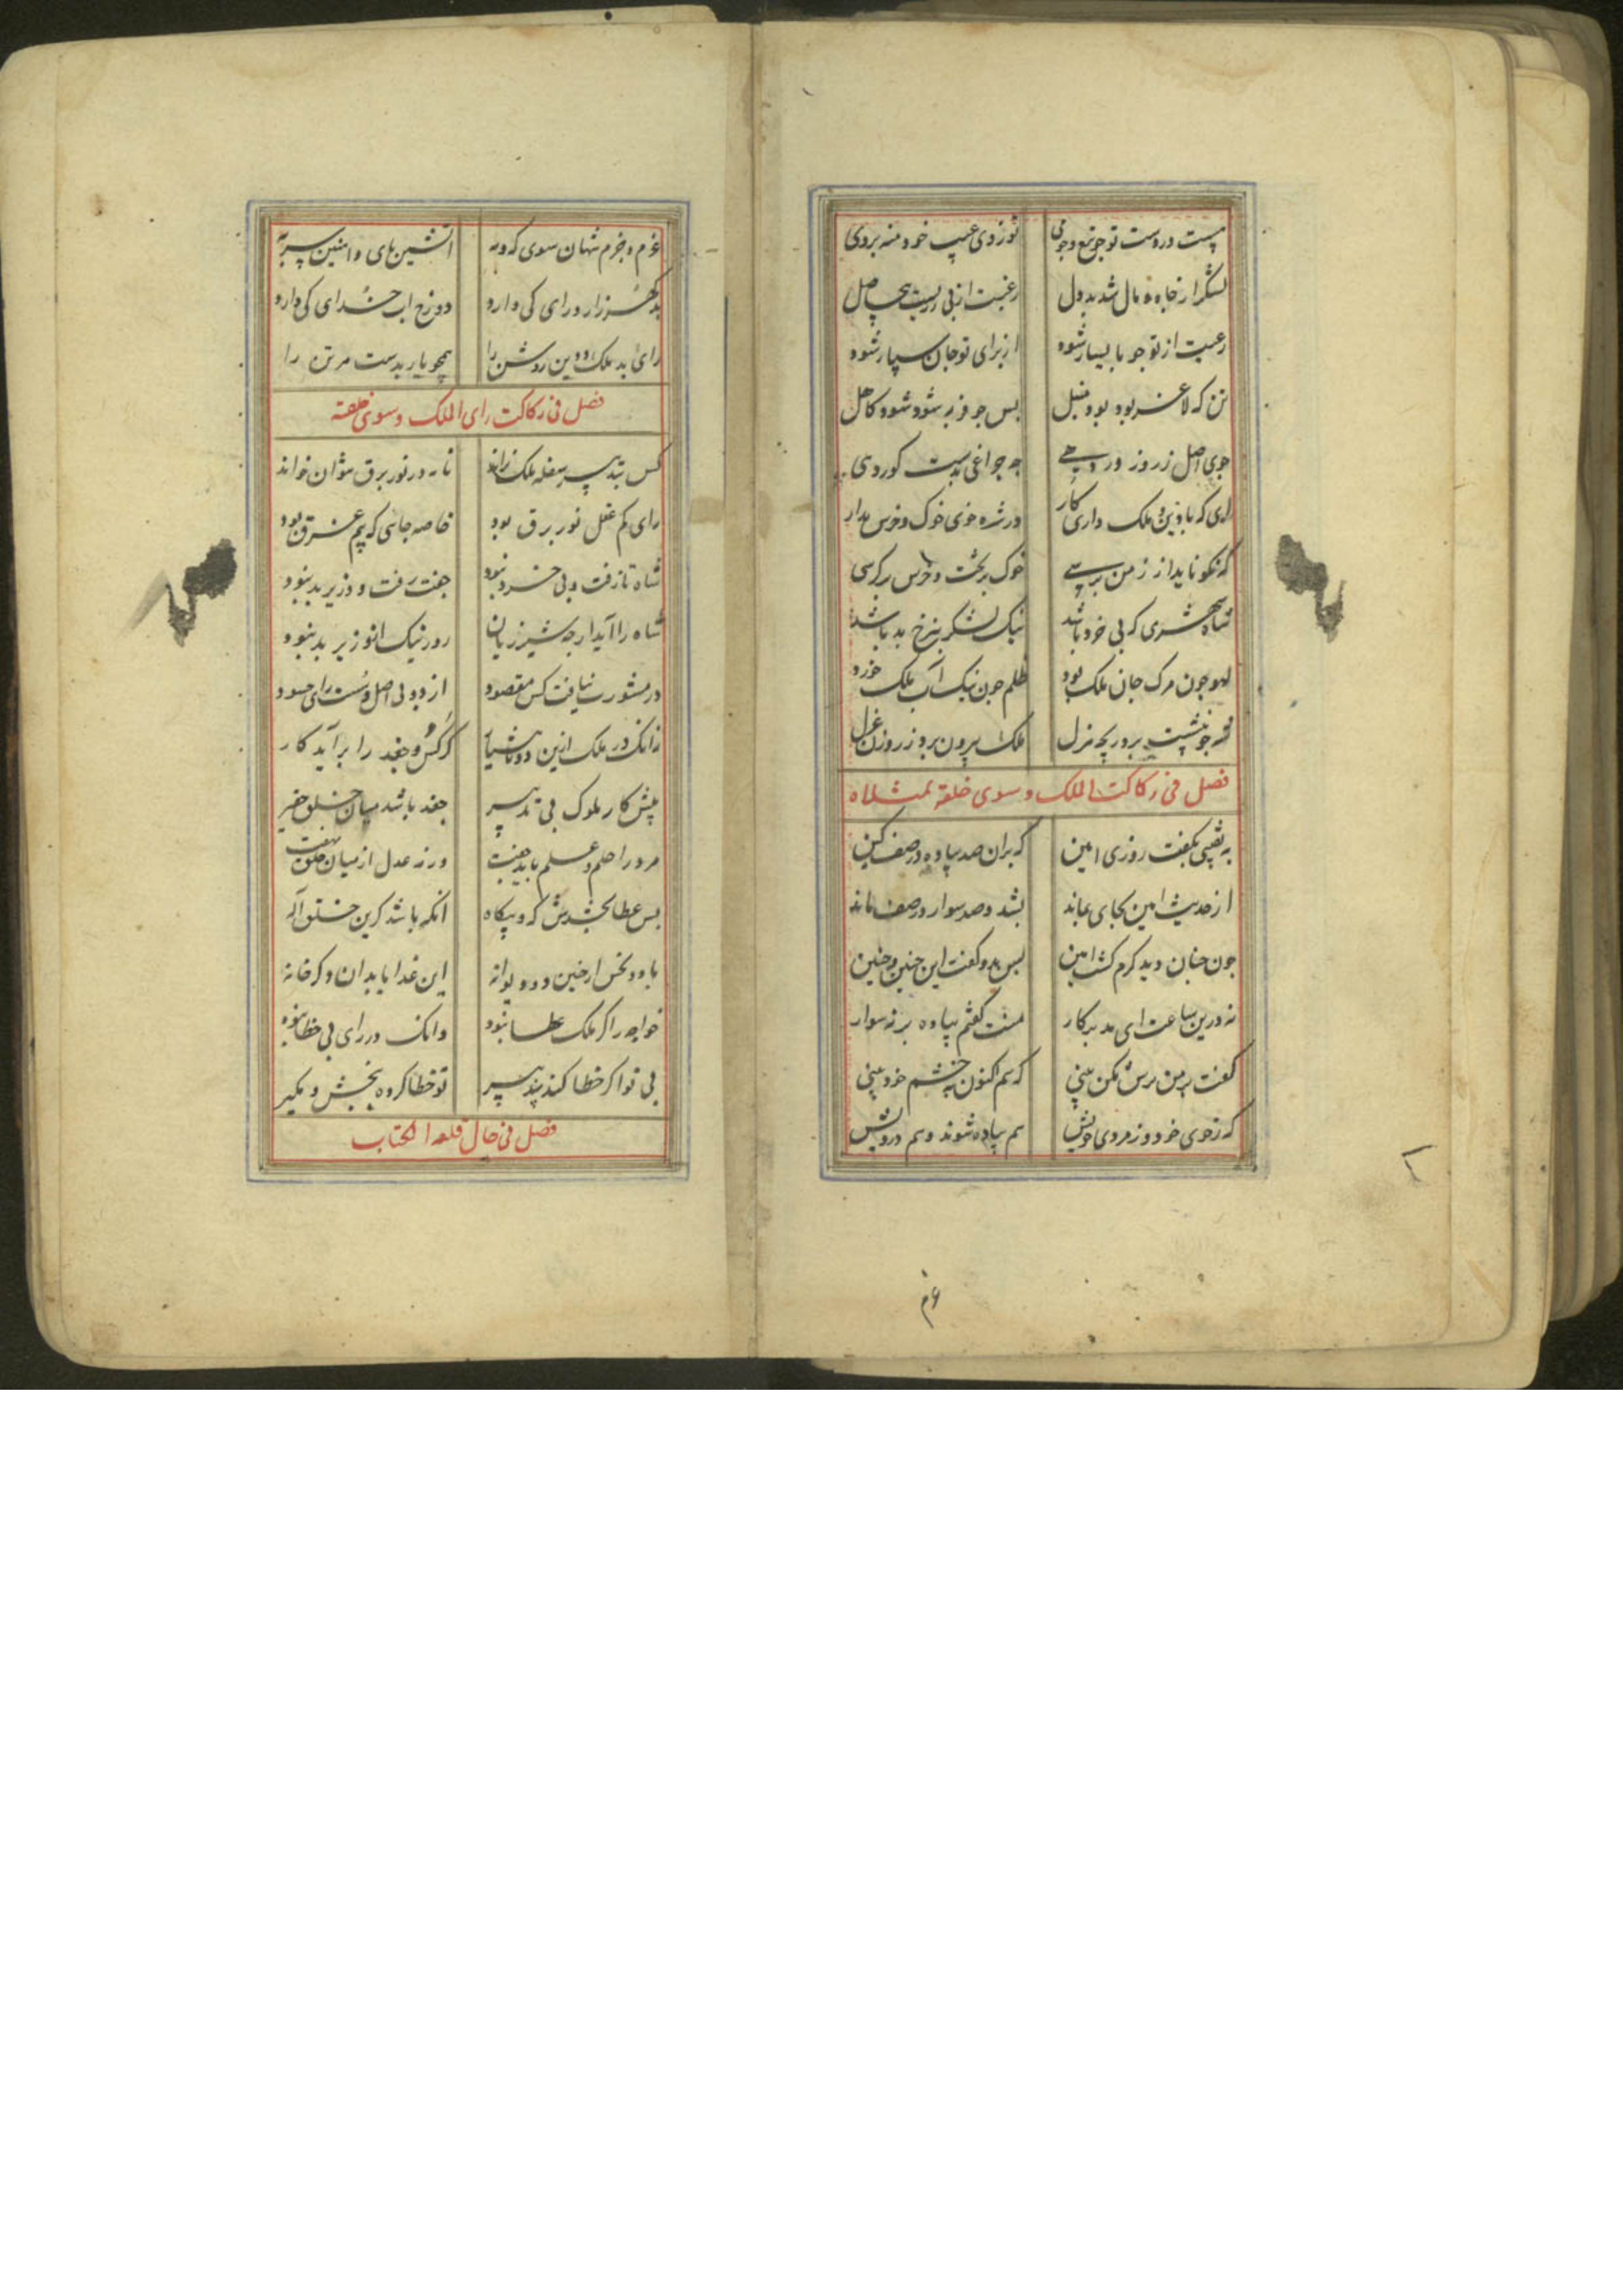 هست در دست تو جو تیغ و جو نی تو ز دی عیب خود منه بر وی
لشکر از جاه و مال شد بددل رعیت از بی زریست بی حاصل
رعیت از تو جو با یسار شود از برای تو جان سپار شود
تن که لاغر بود بود منبل بس جو فربه شود شود کاهل
جوی اصل زر وز در دهی چه جراغی بدست کور دهی
ای که با دین و ملک داری کار در شره خوی خوک و خرس مدار
که نکو ناید از ز من برسی خوک بر تخت و خرس بر کرسی
شاه شهری که بی خرد باشد نیک لشکر بنرخ بد باشد
لهو جون مرک جان ملک بود ظلم جون نیک آب ملک خورد
فتنه جو نشست بر دریجه منزل ملک بیرون برو ز روزن غزل
فصل فی رکاکت الملک و سوی خلقه بمثله
به نقیبی بکفت روزی امین که بران صد پیاده در صف کین
از حدیث امین بجای بماند بشد و صد سوار در صف ماند
جون جنان دید کرم کشت امین بس بدو کفت این جنین و جنین
نه درین ساعت ای مدبر کار منت کفتم پیاده بر نه سوار
کفت بر من ترش مکن بینی که هم اکنون به جشم خود بینی
که ز خوی خود و ز مردی خویش هم پیاده شوند و هم درویش
۶۳
عزم و جزم شهان سوی که و مه آتشین پای و آهنین سر به
بد کهر زار و رای کی دارد دوزخ آب خدای کی دارد
رای بد ملک و دین روشن را همجو یار بدست مر تن را
فصل فی رکاکت رای الملک و سوی خلقه
کس بتدبیر سفله ملک نراند نامه در نور برق نتوان خواند
رای کم عقل نور برق بود خاصه جایی که بیم غرق بود
شاه تا زفت و بی خرد نبود جفت رفت و وزیر بد نبود
شاه را آید ار جه شیر زیان روز نیک از وزیر بد نبود
در مشورت نیافت کس مقصود از دو بی اصل و سست رای حسود
زانک در ملک ازین دو ناشیار کرکس و جغد را برآید کار
پیش کار ملوک بی تدبیر جغد باشد میان خلق حقیر
مرد را حلم و علم باید جفت ورنه عدل از میان خلق بهفت
بس عطا بخشدش که و بیکاه آنکه باشد کزین خلق آله
با دد نحس ار خین و دیوانه این غدا با بدان و کر خانه
خواجه را کر ملک عطا نبود وانک در رای بی خطا نبود
بی تو اکر خطا کند پند پیر تو خطا کرده ببخش و مکیر
فصل فی حال قلعه الکتاب